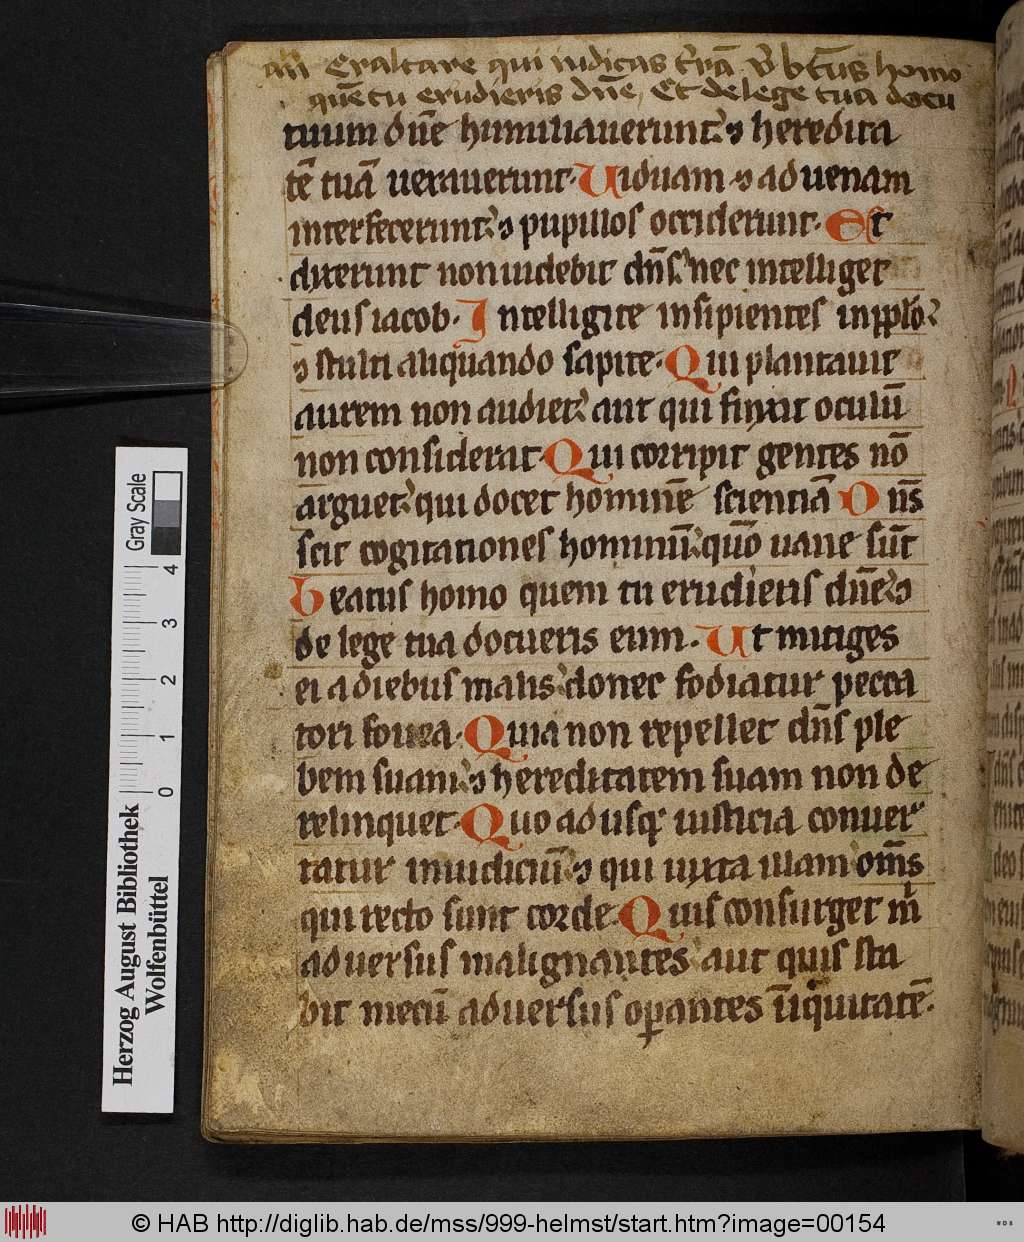 añ Exaltare qui iudicas t̄rā v̄ bt̄us homo
quē tu erudieris dn̄e, Et de lege tua docu
tuum dn̄e humiliauerunt: ⁊ heredita
tē tuā uexauerunt. Uiduam ⁊ aduenam
interfecerunt: ⁊ pupillos occiderunt. Et
dixerunt non uidebit dn̄s: nec intelliget
deus iacob. Intelligite insipientes in pplo:
⁊ stulti aliquando sapite. Qui plantauit
aurem non audiet: aut qui finxit oculū
non considerat. Qui corripit gentes nō
arguet: qui docet hominē scientiā Dn̄s
scit cogitationes hominū: quō uane sūt
beatus homo quem tu erudieris dn̄e: ⁊
de lege tua docueris eum. Ut mitiges
ei a diebus malis: donec fodiatur pecca
tori fouea. Quia non repellet dn̄s ple
bem suam: ⁊ hereditatem suam non de
relinquet. Quo adusq; iusticia conuer
tatur in iudiciū: ⁊ qui iuxta illam om̄s
qui recto sunt corde. Quis consurget m̄
aduersus malignantes aut quis sta
bit mecū aduersus oꝑantes īiquitatē.
Herzog August Bibliothek
Wolfenbüttel
0 1 2 3 4
Gray Scale
© HAB http://diglib.hab.de/mss/999-helmst/start.htm?image=00154